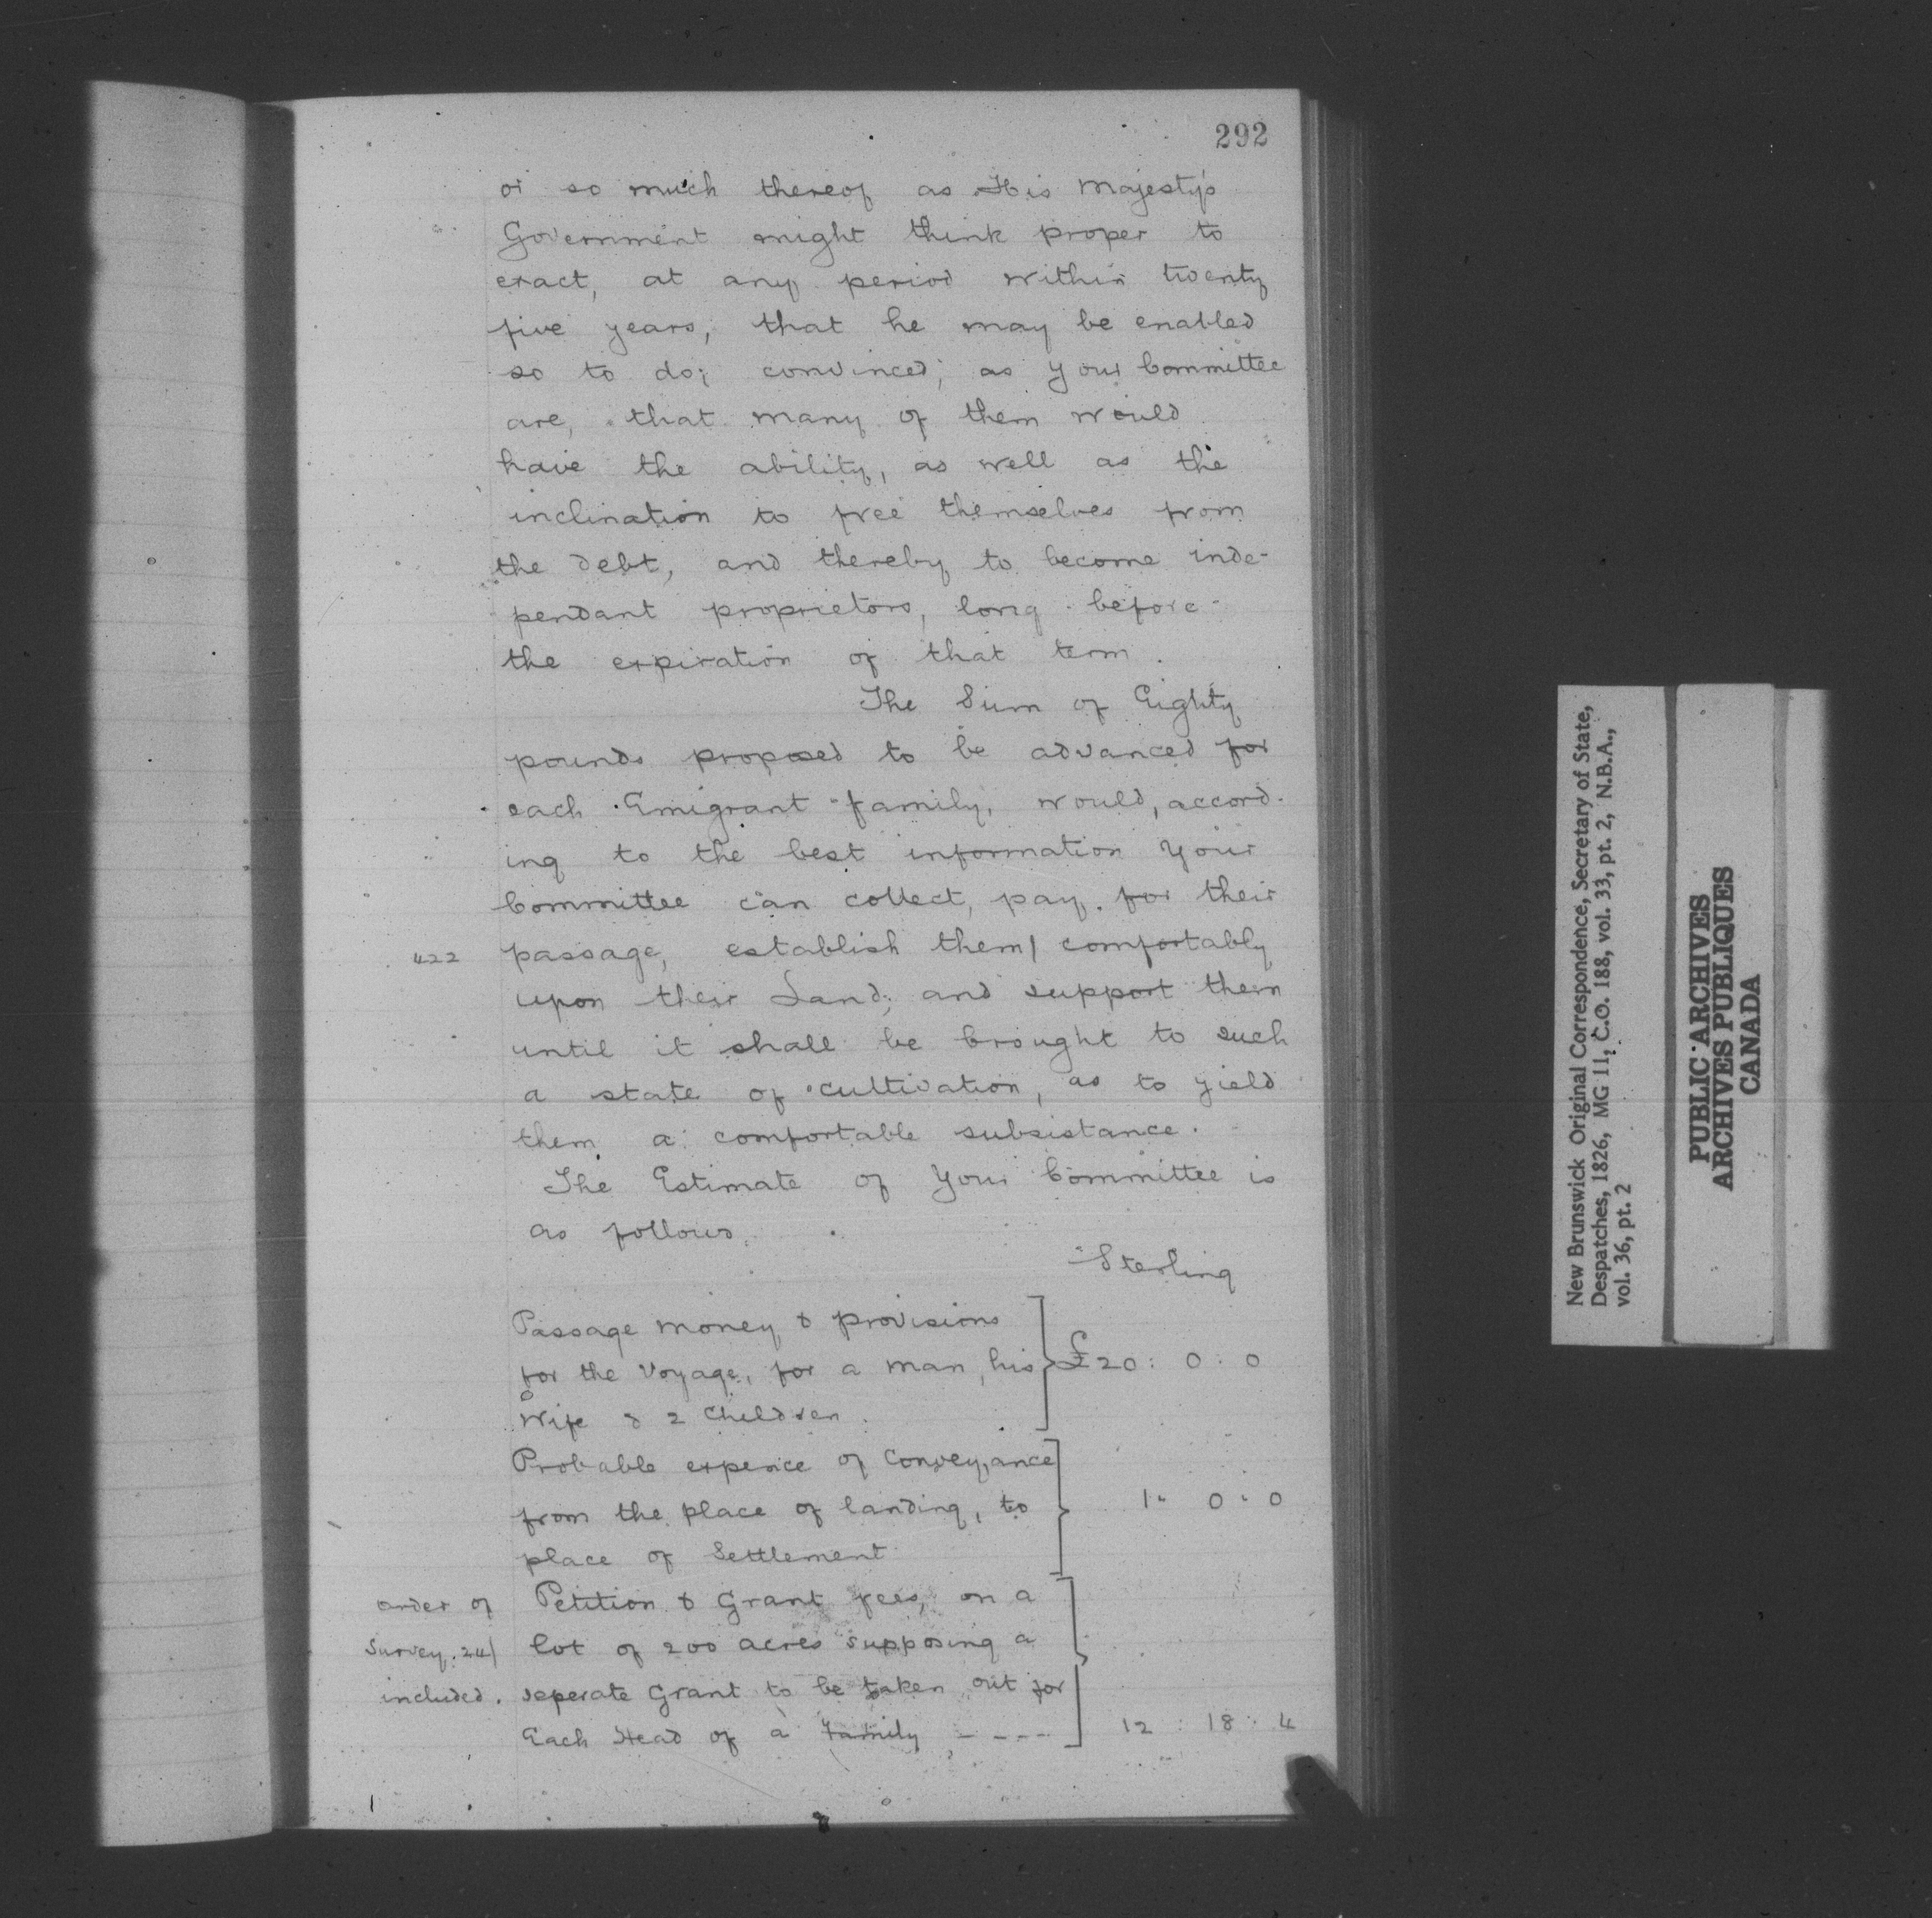 292
or so much thereof as His Majesty's
Government might think proper to
exact, at any period within twenty
five years, that he may be enabled
so to do; convinced, as your Committee
are, that many of them would
have the ability, as well as the
inclination to free themselves from
the debt, and thereby to become inde-
pendant proprietors, long before
the expiration of that term.
The Sum of Eighty
pounds proposed to be advanced for
each Emigrant family, would, accord-
ing to the best information your
Committee can collect, pay for their
422 passage, establish them/ comfortably
upon their Land; and support them
until it shall be brought to such
a state of cultivation, as to yield
them a comfortable subsistance.
The Estimate of your Committee is
as follows.
Sterling
Passage money & provisions
for the Voyage, for a man, his £20 : 0 : 0
Wife & 2 Children.
Probable expence of Conveyance
from the place of landing, to 1 " 0 " 0
place of Settlement
order of Petition & Grant fees, on a
Survey. 24/ lot of 200 acres supposing a
included. seperate Grant to be taken out for
Each Head of a family ---- 12 : 18 : 4
New Brunswick Original Correspondence, Secretary of State,
Despatches, 1826, MG 11, C.O. 188, vol. 33, pt. 2, N.B.A.,
vol. 36, pt. 2
PUBLIC ARCHIVES
ARCHIVES PUBLIQUES
CANADA